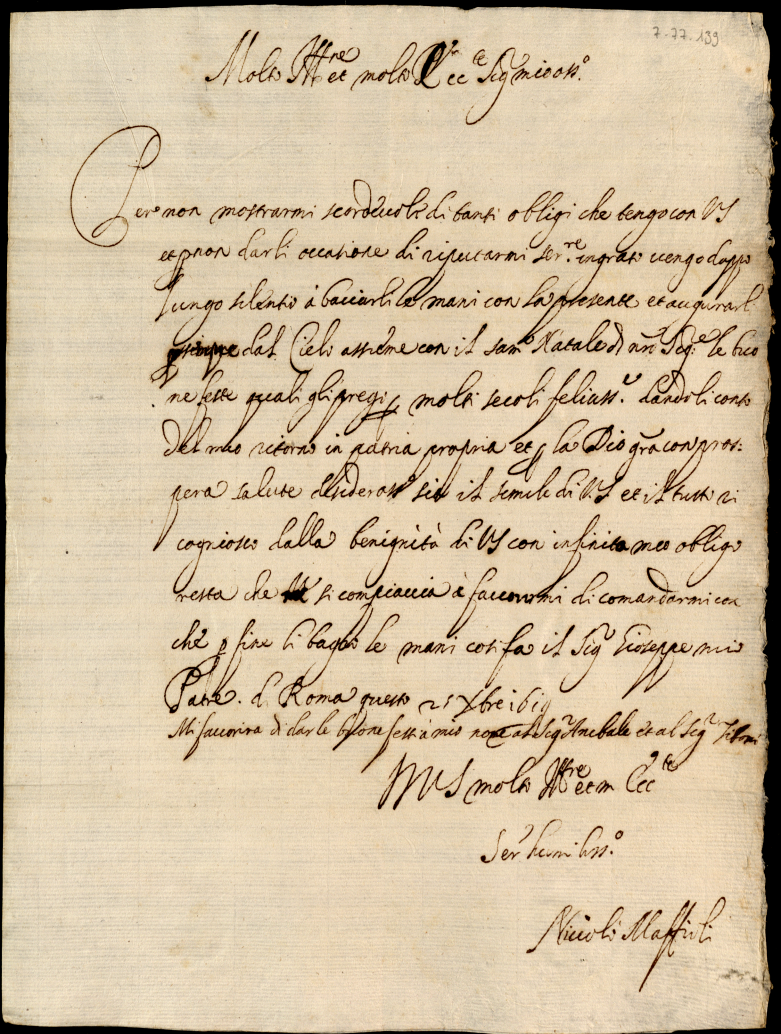 7-77-139
Molto Ill.re et molto Ecc.te Sig.r mio oss.o
Per non mostrarmi scordevole di tanti obligi che tengo con VS
et p non darli occasione di riputarmi ser.re ingrato vengo doppo
lungo silentio à baciarli le mani con la presente et augurarli
dal Cielo assieme con il sant.o Natale di nr̃o Sig.re le buo
ne feste quali gli pregi p molti secoli feliciss.i dandoli conto
del mio ritorno in patria propria et p la Dio grã con pros=
pera salute desideroso sia il simile di VS et il tutto ri
cogniosco dalla benignità di VS con infinito mio obligo
resta che si compiaccia à favorirmi di comandarmi con
che p fine li bagio le mani cosi fa il Sig.r Gioseppe mio
Patre. di Roma questo 25 Xbre 1619
Mi favorira di dar le buone feste à mio nome al Sig.r Anibale et al Sig.r
Di VS molto Ill.re et m Ecc.te
Ser.r humiliss.o
Niccolò Maffioli